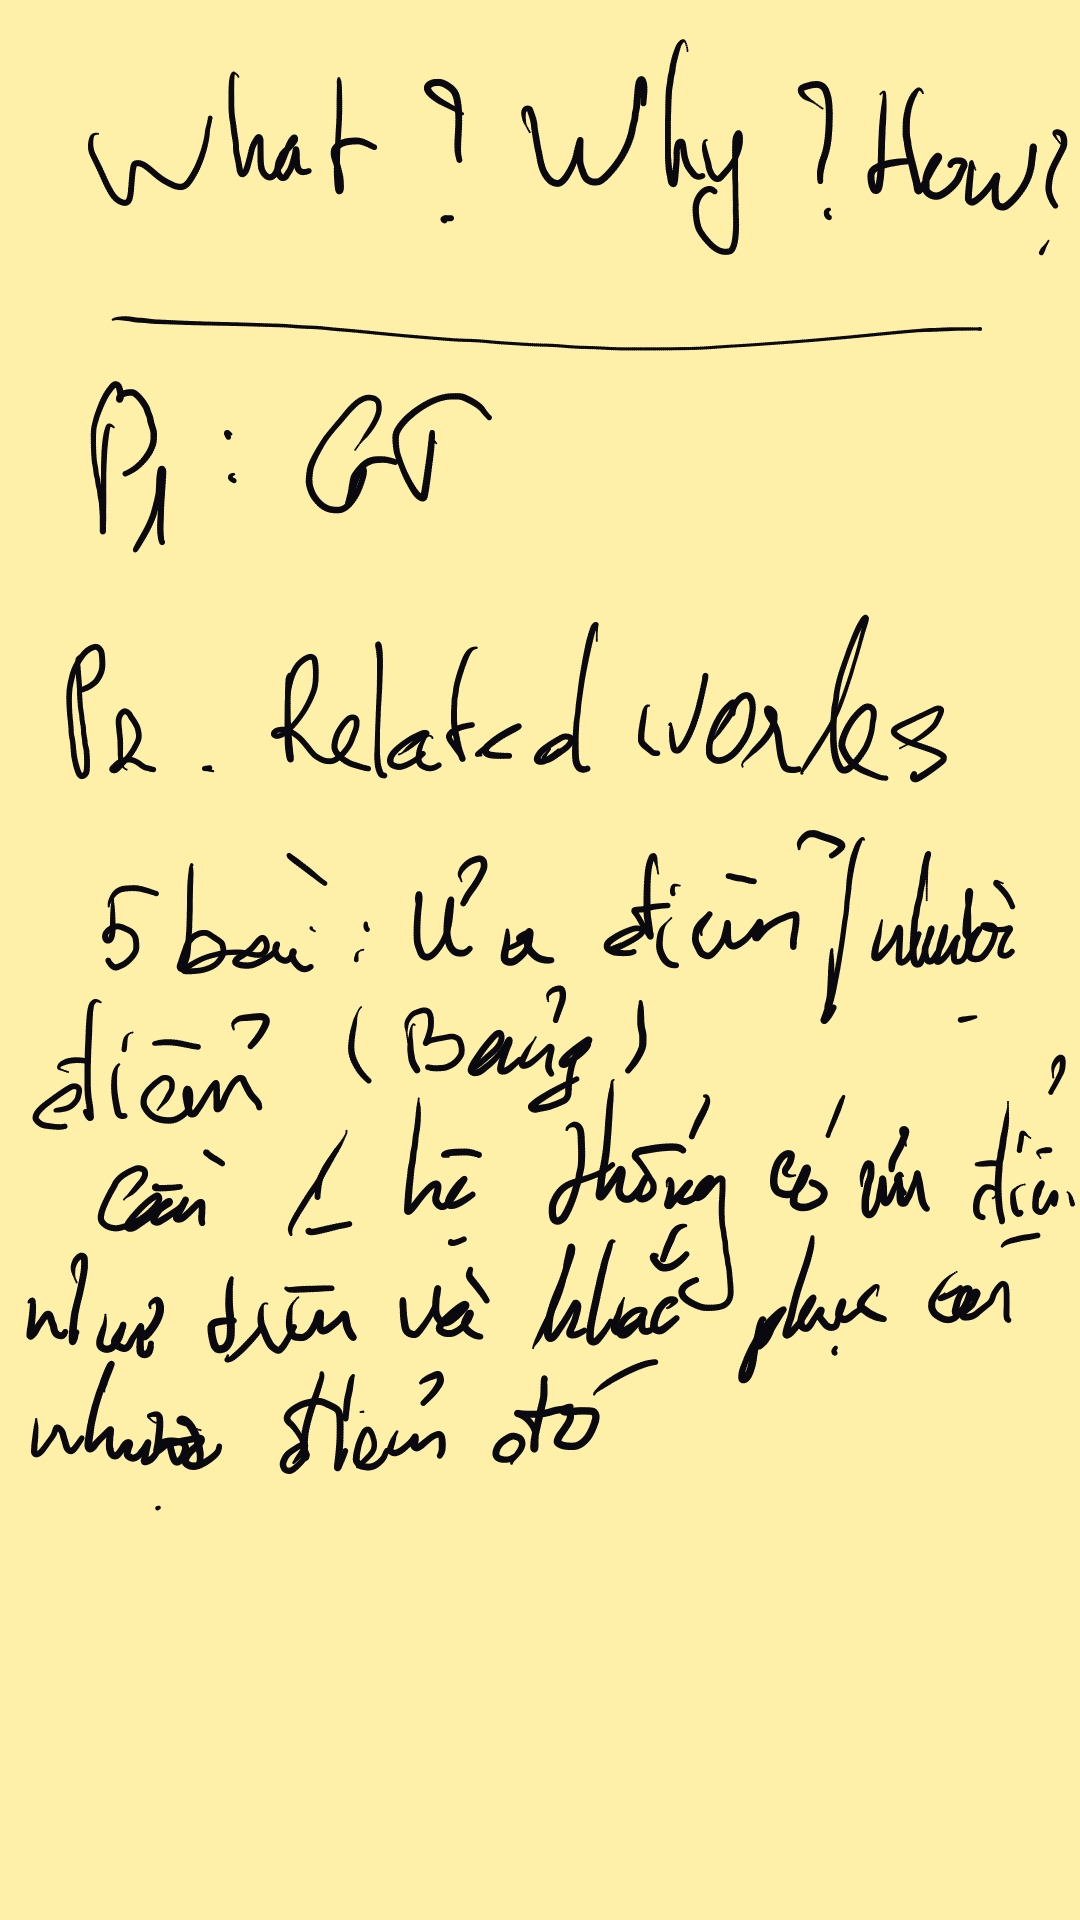 What? Why? How?
P1: GT
P2. Related works
5 bài: Ưu điểm / nhược
điểm (Bảng)
Cần 1 hệ thống có ưu điểm
như trên và khắc phục các
nhược điểm đó